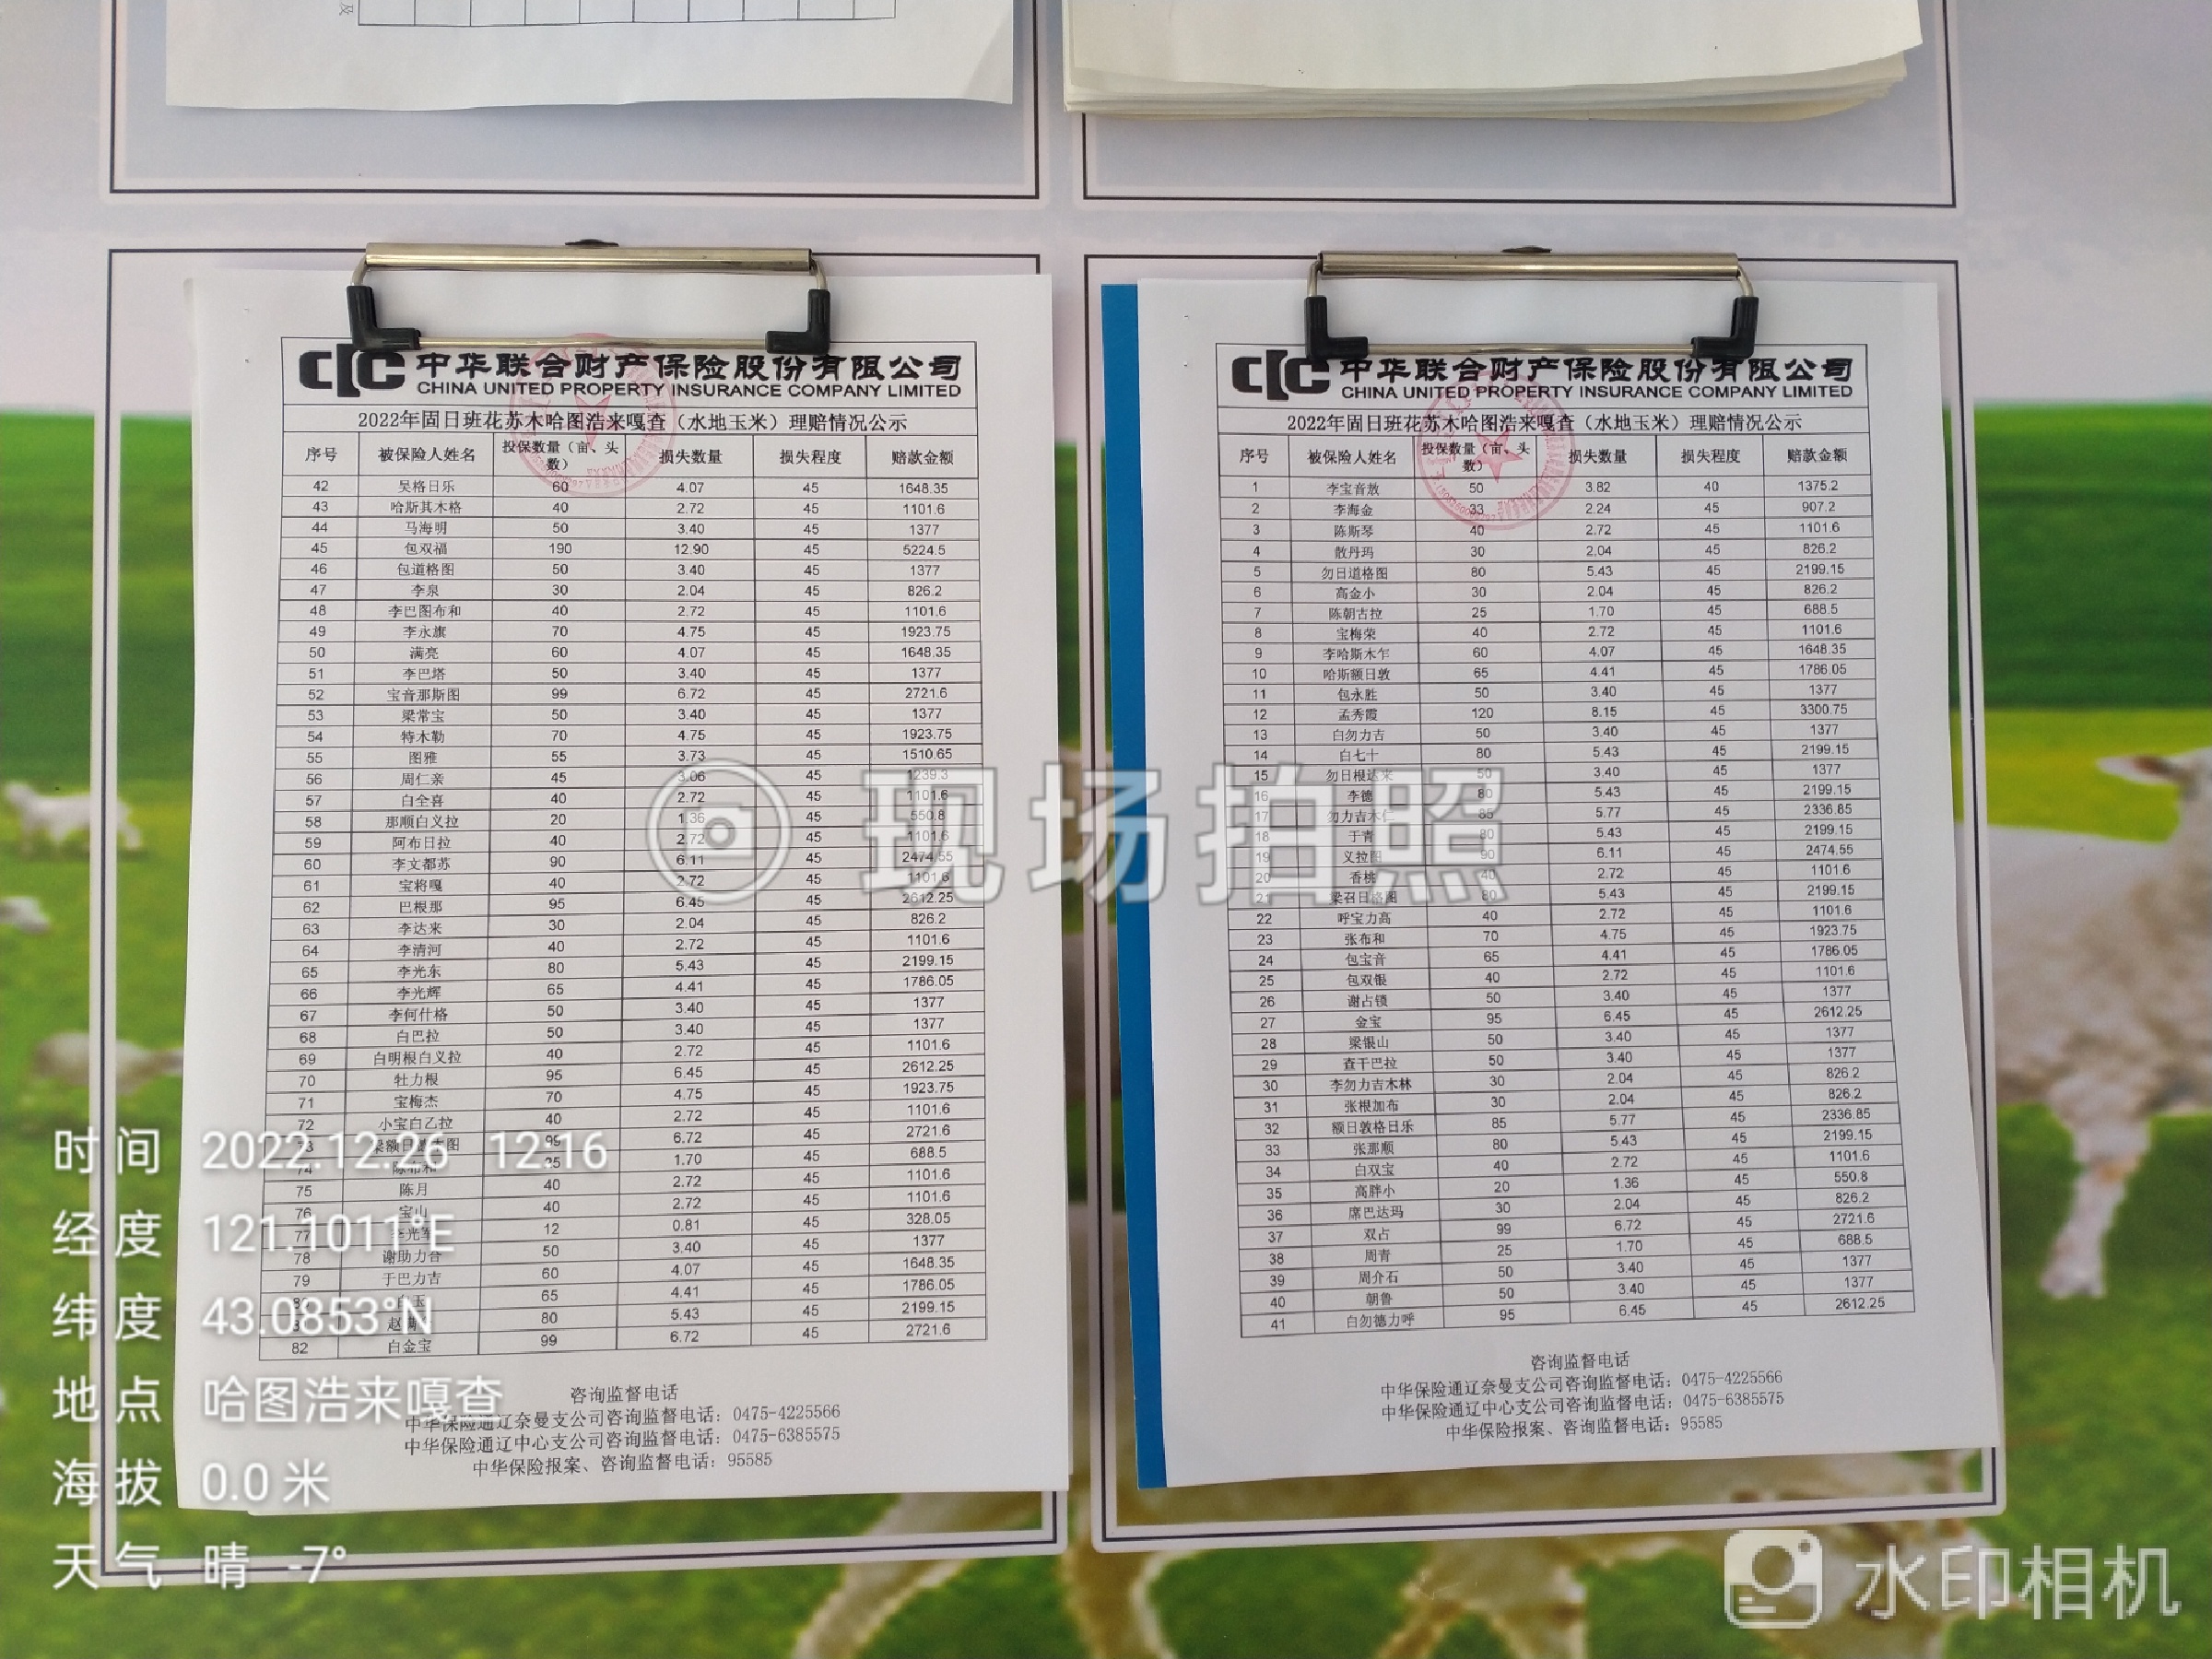 及
中华联合财产保险股份有限公司
CHINA UNITED PROPERTY INSURANCE COMPANY LIMITED
2022年固日班花苏木哈图浩来嘎查（水地玉米）理赔情况公示
序号 被保险人姓名 投保数量（亩、头数） 损失数量 损失程度 赔款金额
42 吴格日乐 60 4.07 45 1648.35
43 哈斯其木格 40 2.72 45 1101.6
44 马海明 50 3.40 45 1377
45 包双福 190 12.90 45 5224.5
46 包道格图 50 3.40 45 1377
47 李泉 30 2.04 45 826.2
48 李巴图布和 40 2.72 45 1101.6
49 李永旗 70 4.75 45 1923.75
50 满亮 60 4.07 45 1648.35
51 李巴塔 50 3.40 45 1377
52 宝音那斯图 99 6.72 45 2721.6
53 梁常宝 50 3.40 45 1377
54 特木勒 70 4.75 45 1923.75
55 图雅 55 3.73 45 1510.65
56 周仁亲 45 3.06 45 1239.3
57 白全喜 40 2.72 45 1101.6
58 那顺白义拉 20 1.36 45 550.8
59 阿布日拉 40 2.72 45 1101.6
60 李文都苏 90 6.11 45 2474.55
61 宝将嘎 40 2.72 45 1101.6
62 巴根那 95 6.45 45 2612.25
63 李达来 30 2.04 45 826.2
64 李清河 40 2.72 45 1101.6
65 李光东 80 5.43 45 2199.15
66 李光辉 65 4.41 45 1786.05
67 李何什格 50 3.40 45 1377
68 白巴拉 50 3.40 45 1377
69 白明根白义拉 40 2.72 45 1101.6
70 牡力根 95 6.45 45 2612.25
71 宝梅杰 70 4.75 45 1923.75
72 小宝白乙拉 40 2.72 45 1101.6
73 99 6.72 45 2721.6
74 陈布和 25 1.70 45 688.5
75 陈月 40 2.72 45 1101.6
76 宝山 40 2.72 45 1101.6
77 12 0.81 45 328.05
78 谢助力合 50 3.40 45 1377
79 于巴力吉 60 4.07 45 1648.35
白玉 65 4.41 45 1786.05
80 5.43 45 2199.15
82 白金宝 99 6.72 45 2721.6
咨询监督电话
中华保险通辽奈曼支公司咨询监督电话：0475-4225566
中华保险通辽中心支公司咨询监督电话：0475-6385575
中华保险报案、咨询监督电话：95585
中华联合财产保险股份有限公司
CHINA UNITED PROPERTY INSURANCE COMPANY LIMITED
2022年固日班花苏木哈图浩来嘎查（水地玉米）理赔情况公示
序号 被保险人姓名 投保数量（亩、头数） 损失数量 损失程度 赔款金额
1 李宝音敖 50 3.82 40 1375.2
2 李海金 33 2.24 45 907.2
3 陈斯琴 40 2.72 45 1101.6
4 散丹玛 30 2.04 45 826.2
5 勿日道格图 80 5.43 45 2199.15
6 高金小 30 2.04 45 826.2
7 陈朝古拉 25 1.70 45 688.5
8 宝梅荣 40 2.72 45 1101.6
9 李哈斯木乍 60 4.07 45 1648.35
10 哈斯额日敦 65 4.41 45 1786.05
11 包永胜 50 3.40 45 1377
12 孟秀霞 120 8.15 45 3300.75
13 白勿力吉 50 3.40 45 1377
14 白七十 80 5.43 45 2199.15
15 勿日根达来 50 3.40 45 1377
16 李德 80 5.43 45 2199.15
17 勿力吉木仁 85 5.77 45 2336.85
18 于青 80 5.43 45 2199.15
19 义拉图 90 6.11 45 2474.55
20 香桃 40 2.72 45 1101.6
21 梁召日格图 80 5.43 45 2199.15
22 呼宝力高 40 2.72 45 1101.6
23 张布和 70 4.75 45 1923.75
24 包宝音 65 4.41 45 1786.05
25 包双银 40 2.72 45 1101.6
26 谢占锁 50 3.40 45 1377
27 金宝 95 6.45 45 2612.25
28 梁银山 50 3.40 45 1377
29 查干巴拉 50 3.40 45 1377
30 李勿力吉木林 30 2.04 45 826.2
31 张根加布 30 2.04 45 826.2
32 额日敦格日乐 85 5.77 45 2336.85
33 张那顺 80 5.43 45 2199.15
34 白双宝 40 2.72 45 1101.6
35 高胖小 20 1.36 45 550.8
36 席巴达玛 30 2.04 45 826.2
37 双占 99 6.72 45 2721.6
38 周青 25 1.70 45 688.5
39 周介石 50 3.40 45 1377
40 朝鲁 50 3.40 45 1377
41 白勿德力呼 95 6.45 45 2612.25
咨询监督电话
中华保险通辽奈曼支公司咨询监督电话：0475-4225566
中华保险通辽中心支公司咨询监督电话：0475-6385575
中华保险报案、咨询监督电话：95585
现场拍照
时间 2022.12.26 12:16
经度 121.1011°E
纬度 43.0853°N
地点 哈图浩来嘎查
海拔 0.0米
天气 晴 -7°
水印相机